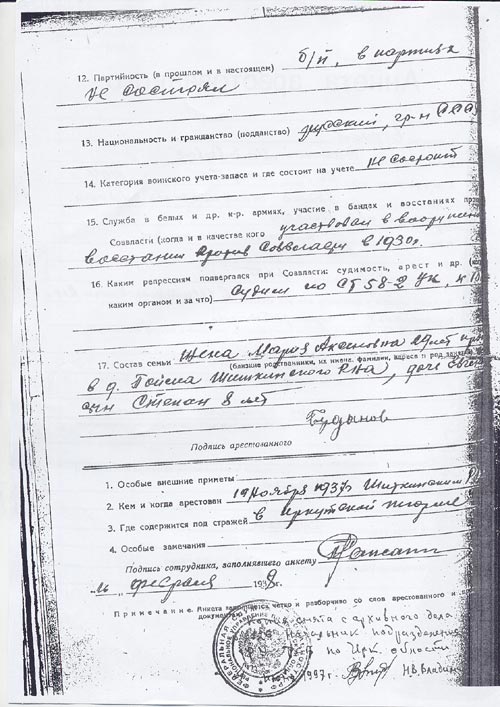 12. Партийность (в прошлом и в настоящем) б/п, в партиях
не состоял
13. Национальность и гражданство (подданство) русский, гр-н СССР
14. Категория воинского учета-запаса и где состоит на учете не состоит
15. Служба в белых и др. к-р. армиях, участие в бандах и восстаниях
Совласти (когда и в качестве кого) участвовал в вооружен
восстании против Соввласти в 1930г.
16. Каким репрессиям подвергался при Совласти: судимость, арест и др.
каким органом и за что) судим по ст 58-2 УК
17. Состав семьи Жена Мария 29 лет
(близкие родственники, их имена, фамилии, адреса и род
в д. Шиткинского р-на, дочь
сын Степан 8 лет
Подпись арестованного
1. Особые внешние приметы
2. Кем и когда арестован 19 ноября 1937г Шиткинским
3. Где содержится под стражей в Иркутской тюрьме
4. Особые замечания
Подпись сотрудника, заполнявшего анкету
февраля 1938г.
Примечание. Анкета заполняется четко и разборчиво со слов арестованного и
документа
копия снята с архивного дела
Начальник подразделения
по Ирк. области
1997г.